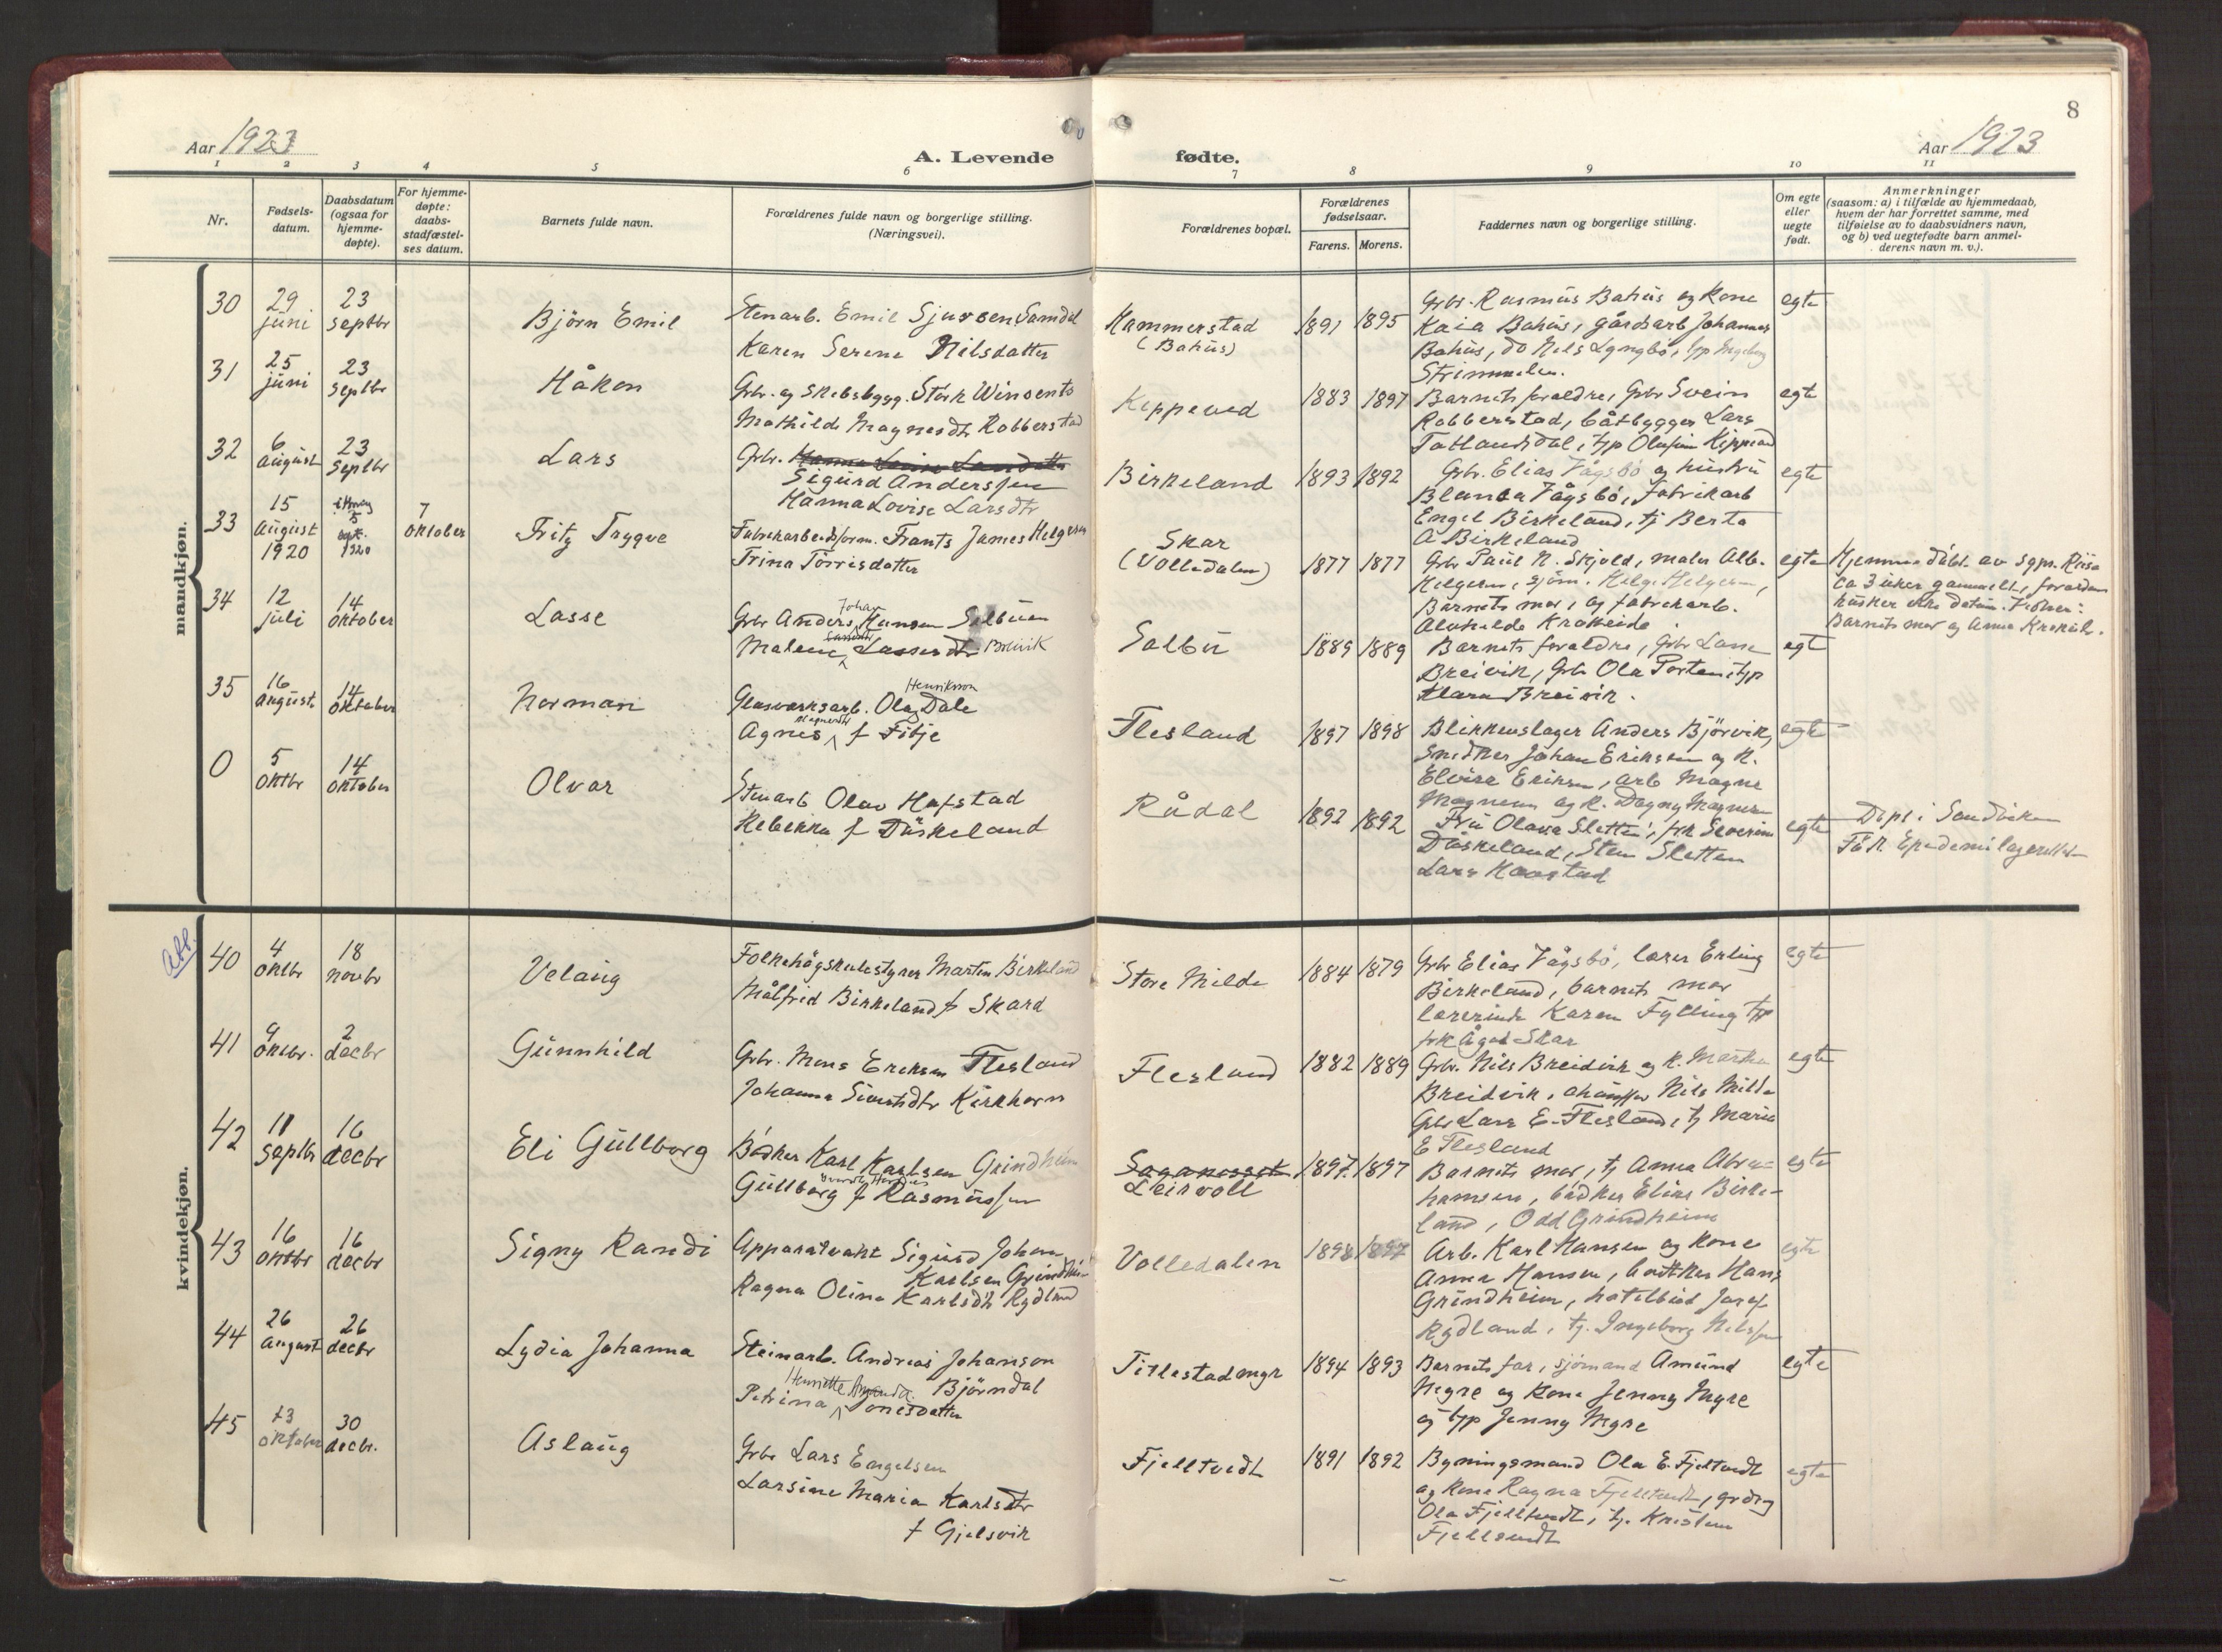 8
Aar 1923
A. Levende
fødte.
Aar 1923
1 2 3 4 5 6 7 8 9 10 11
Nr.
Fødsels-
datum.
Daabsdatum
(ogsaa for
hjemme-
døpte).
For hjemme-
døpte:
daabs-
stadfæstel-
ses datum.
Barnets fulde navn.
Forældrenes fulde navn og borgerlige stilling.
(Næringsvei).
Forældrenes bopæl.
Forældrenes
fødselsaar.
Farens. Morens.
Faddernes navn og borgerlige stilling.
Om egte
eller
uegte
født.
Anmerkninger
(saasom: a) i tilfælde av hjemmedaab,
hvem der har forrettet samme, med
tilføielse av to daabsvidners navn,
og b) ved uegtefødte barn anmel-
derens navn m. v.).
mandkjøn.
30
29
juni
23
septbr
Björn Emil
Stenarb. Emil Sjursen Samdal
Karen Serene Nilsdatter
Hammerstad
(Bahus)
1891 1895
Grbr. Rasmus Bahus og kone
Kaia Bahus, gårdsarb Johannes
Bahus, do Nels Lyngbö,
Strimmelen.
egte
31
25
juni
23
septbr
Håkon
Grbr. og skibsbygg. Störk Winsents
Mathilde Magnesdtr Robberstad
Keppeved
1883 1897
Barnets foreldre, Grbr Svein
Robberstad, båtbygger Lars
Totlandsdal,
egte
32
6
august
23
septbr
Lars
Grbr. Hanna Lovise Larsdatter
Sigurd Anderssen
Hanna Lovise Larsdtr
Birkeland
1893 1892
Grbr. Elias Vågsbö og hustru
Blanca Vågsbö, Fabrikarb
Engel Birkeland, tj Berta
A Birkeland
egte
33
15
august
1920
5
sept.
1920
7
oktober
Fritz Trygve
Fabrikarbeidsform. Frants James Helgesen
Trina Törrisdatter
Skar
(Volledalen)
1877 1877
Grbr Paul N. Skjold, maler Alb.
Helgesen, sjöm. Helge Helgesen,
Barnets mor, og fabrikarb.
Alvhilde Krokeide
egte
Hjemmedöbt av Sgpr. Riisa
ca 3 uker gammelt, foreldrene
husker ikke datum. Vidner:
Barnets mor og Anna Krokeide.
34
12
juli
14
oktober
Lasse
Grbr Anders Johan Hansen Sælbuen
Malene Lassesdtr Breivik
Salbu
1889 1889
Barnets foreldre, Grbr Lasse
Breivik, Grbr Ola Porten, typ
Klara Breivik.
egt
35
16
august
14
oktober
Norman
Glasverksarb. Olaf Henrikson Dale
Agnes Magnesdtr f Fitje
Flesland
1897 1898
Blikkenslager Anders Björvik,
Snedker Johan Eriksen og k.
Elvire Eriksen, arb Magne
Magnesen og k. Dagny Magnesen
egte
0
5
oktbr
14
oktober
Olvar
Stenarb Olav Hafstad
Rebekka f Düskeland
Rådal
1892 1892
Fru Olava Sletten, frk Severine
Düskeland, Sten Sletten
Lars Haastad
egte
Döpt i Sandviken
Få k. Epedemilagerettet
kvindekjøn.
40
4
oktbr
18
novbr
Velaug
Folkehögskulestyrer Martin Birkeland
Målfrid Birkeland f Skard
Store Milde
1884 1879
Grbr Elias Vågsbö, lærer Erling
Birkeland, barnets mor
lærerinde Karen Fylling
frk Ågot Skar
egte
41
9
oktbr.
2
decbr
Gunnhild
Grbr. Mons Eriksen Flesland
Johanna Sivertsdtr Kirkhorn
Flesland
1882 1889
Grbr. Nils Breidvik og k. Marta
Breidvik, chauffør Nils Milde
Grbr Lars E. Flesland, tj Marie
E Flesland
egte
42
11
septbr
16
decbr
Eli Gullborg
Bödker Karl Karlsen Grindheim
Gullborg f Rasmussen
Leirvoll
1897 1897
Barnets mor, tj Anna Abra-
hamsen, bödker Elias Birke-
land, Odd Grindheim
egte
43
16
oktbr
16
decbr
Signy Randi
Apparatvakt Sigurd Johan
Karlsen Grindheim
Ragna Olina Karlsdtr Rydland
Volledalen
1898 1897
Arb. Karl Hansen og kone
Anna Hansen, bödtker Hans
Grindheim, hotelbud Josef
Rydland, tj. Ingeborg Nilssen
egte
44
26
august
26
decbr
Lydia Johanna
Steinarb. Andreas Johanson
Björndal
Petrina Henriette Amanda Jonesdatter
Titlestadmyr
1894 1893
Barnets far, sjömand Amund
Nygre og kone Jenny Mgre
og typ Jenny Mgre
egte
45
23
oktober
30
decbr.
Aslaug
Grbr Lars Engelsen
Larsine Maria Karlsdtr
f Gjelsvik
Fjelltvedt
1891 1892
Bygningsmand Ola E. Fjeltvedt
og kone Ragna Fjelltvedt, grdbrg
Ola Fjelltvedt, tj. Kristian
Fjelltvedt
egte